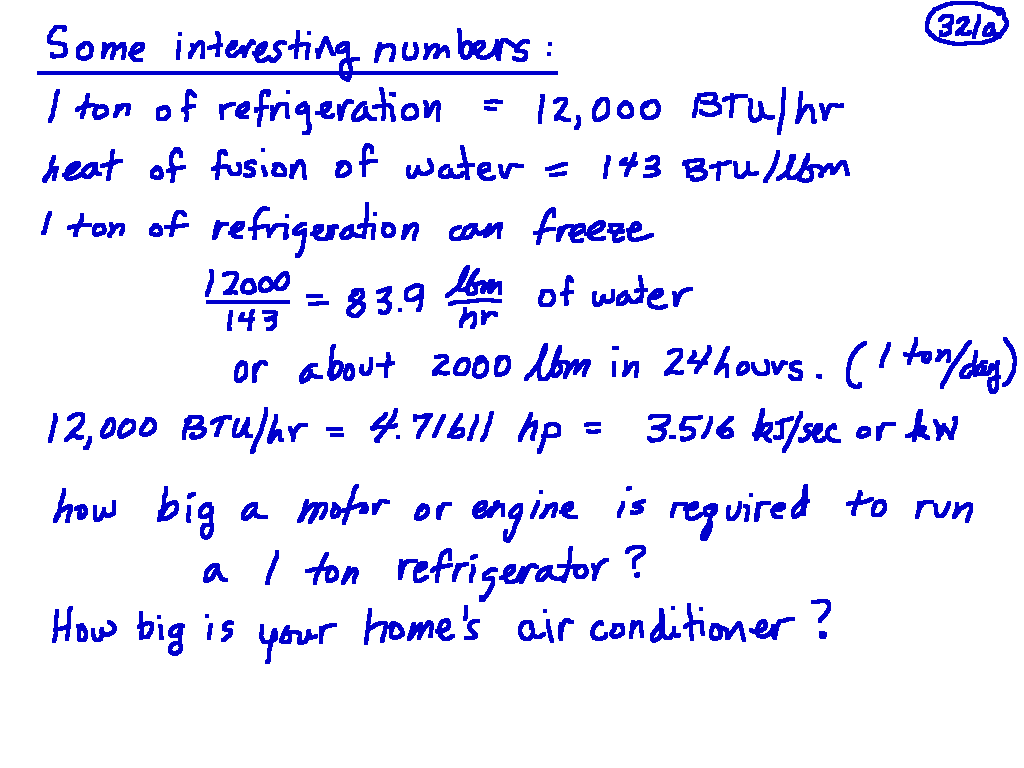 321a
Some interesting numbers:
1 ton of refrigeration = 12,000 BTU/hr
heat of fusion of water = 143 BTU/lbm
1 ton of refrigeration can freeze
12000/143 = 83.9 lbm/hr of water
or about 2000 lbm in 24 hours. (1 ton/day)
12,000 BTU/hr = 4.71611 hp = 3.516 kJ/sec or kW
how big a motor or engine is required to run
a 1 ton refrigerator?
How big is your home's air conditioner?